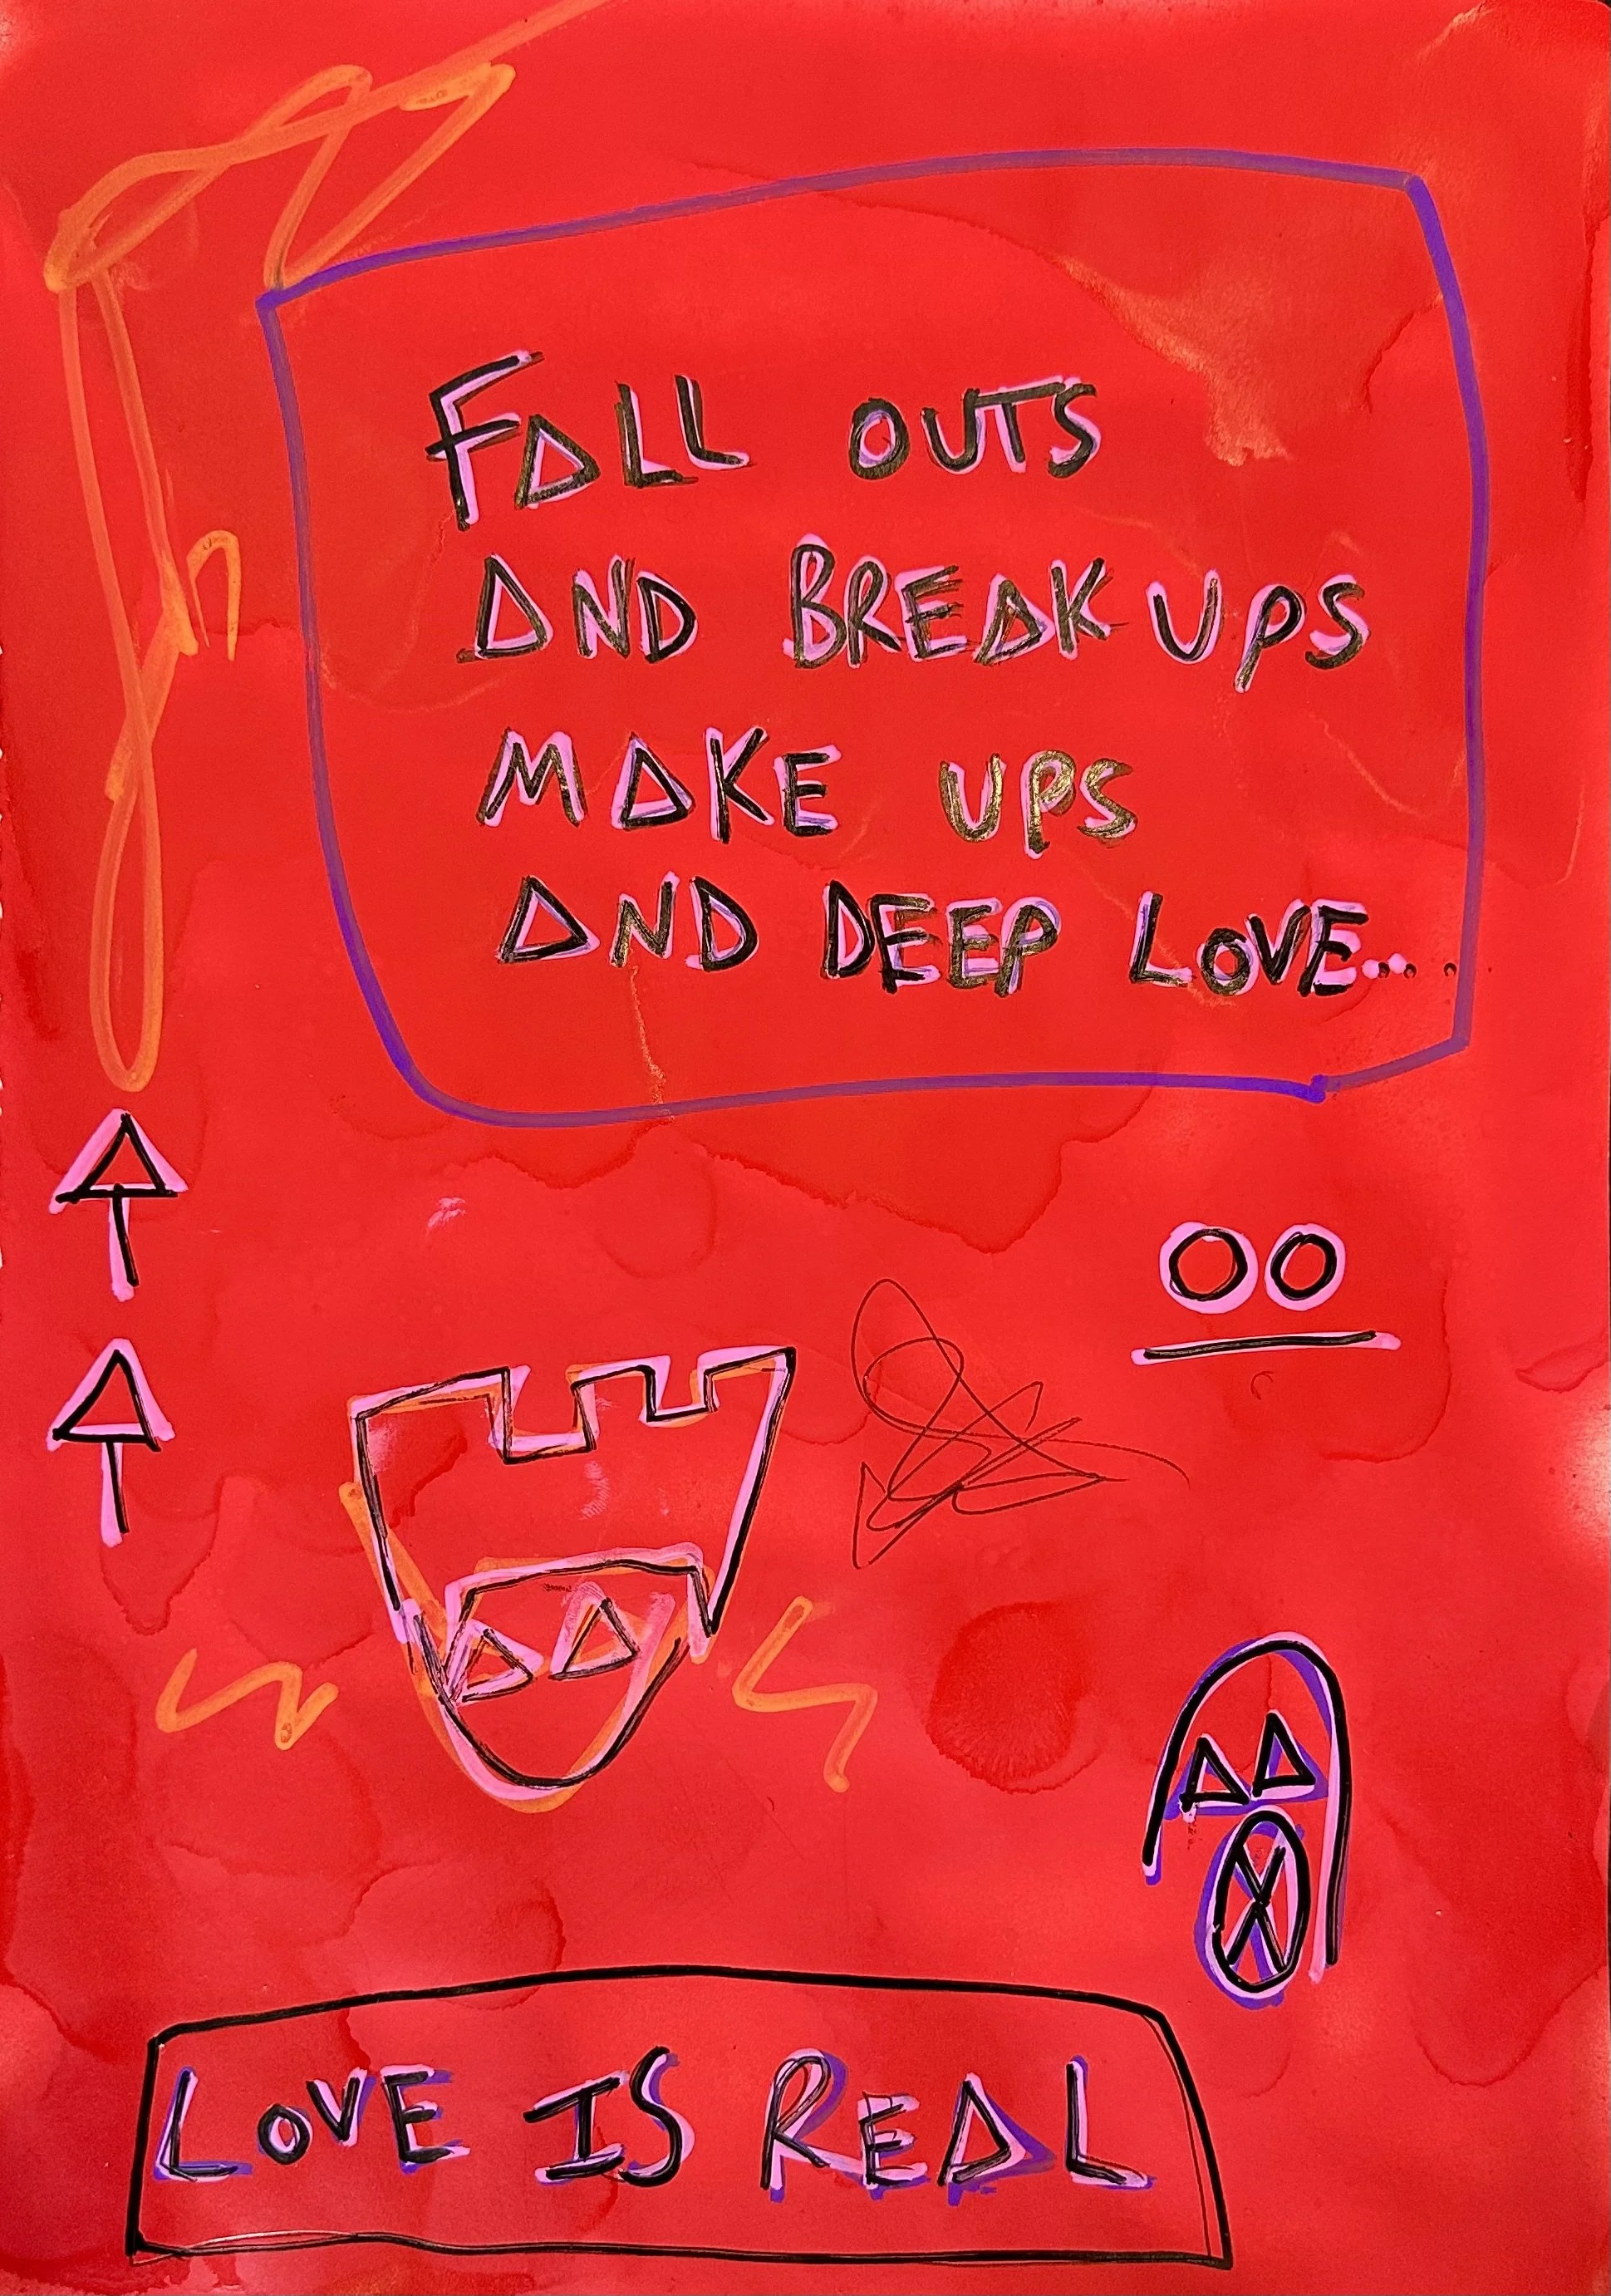 FALL OUTS
AND BREAK UPS
MAKE UPS
AND DEEP LOVE....
LOVE IS REAL